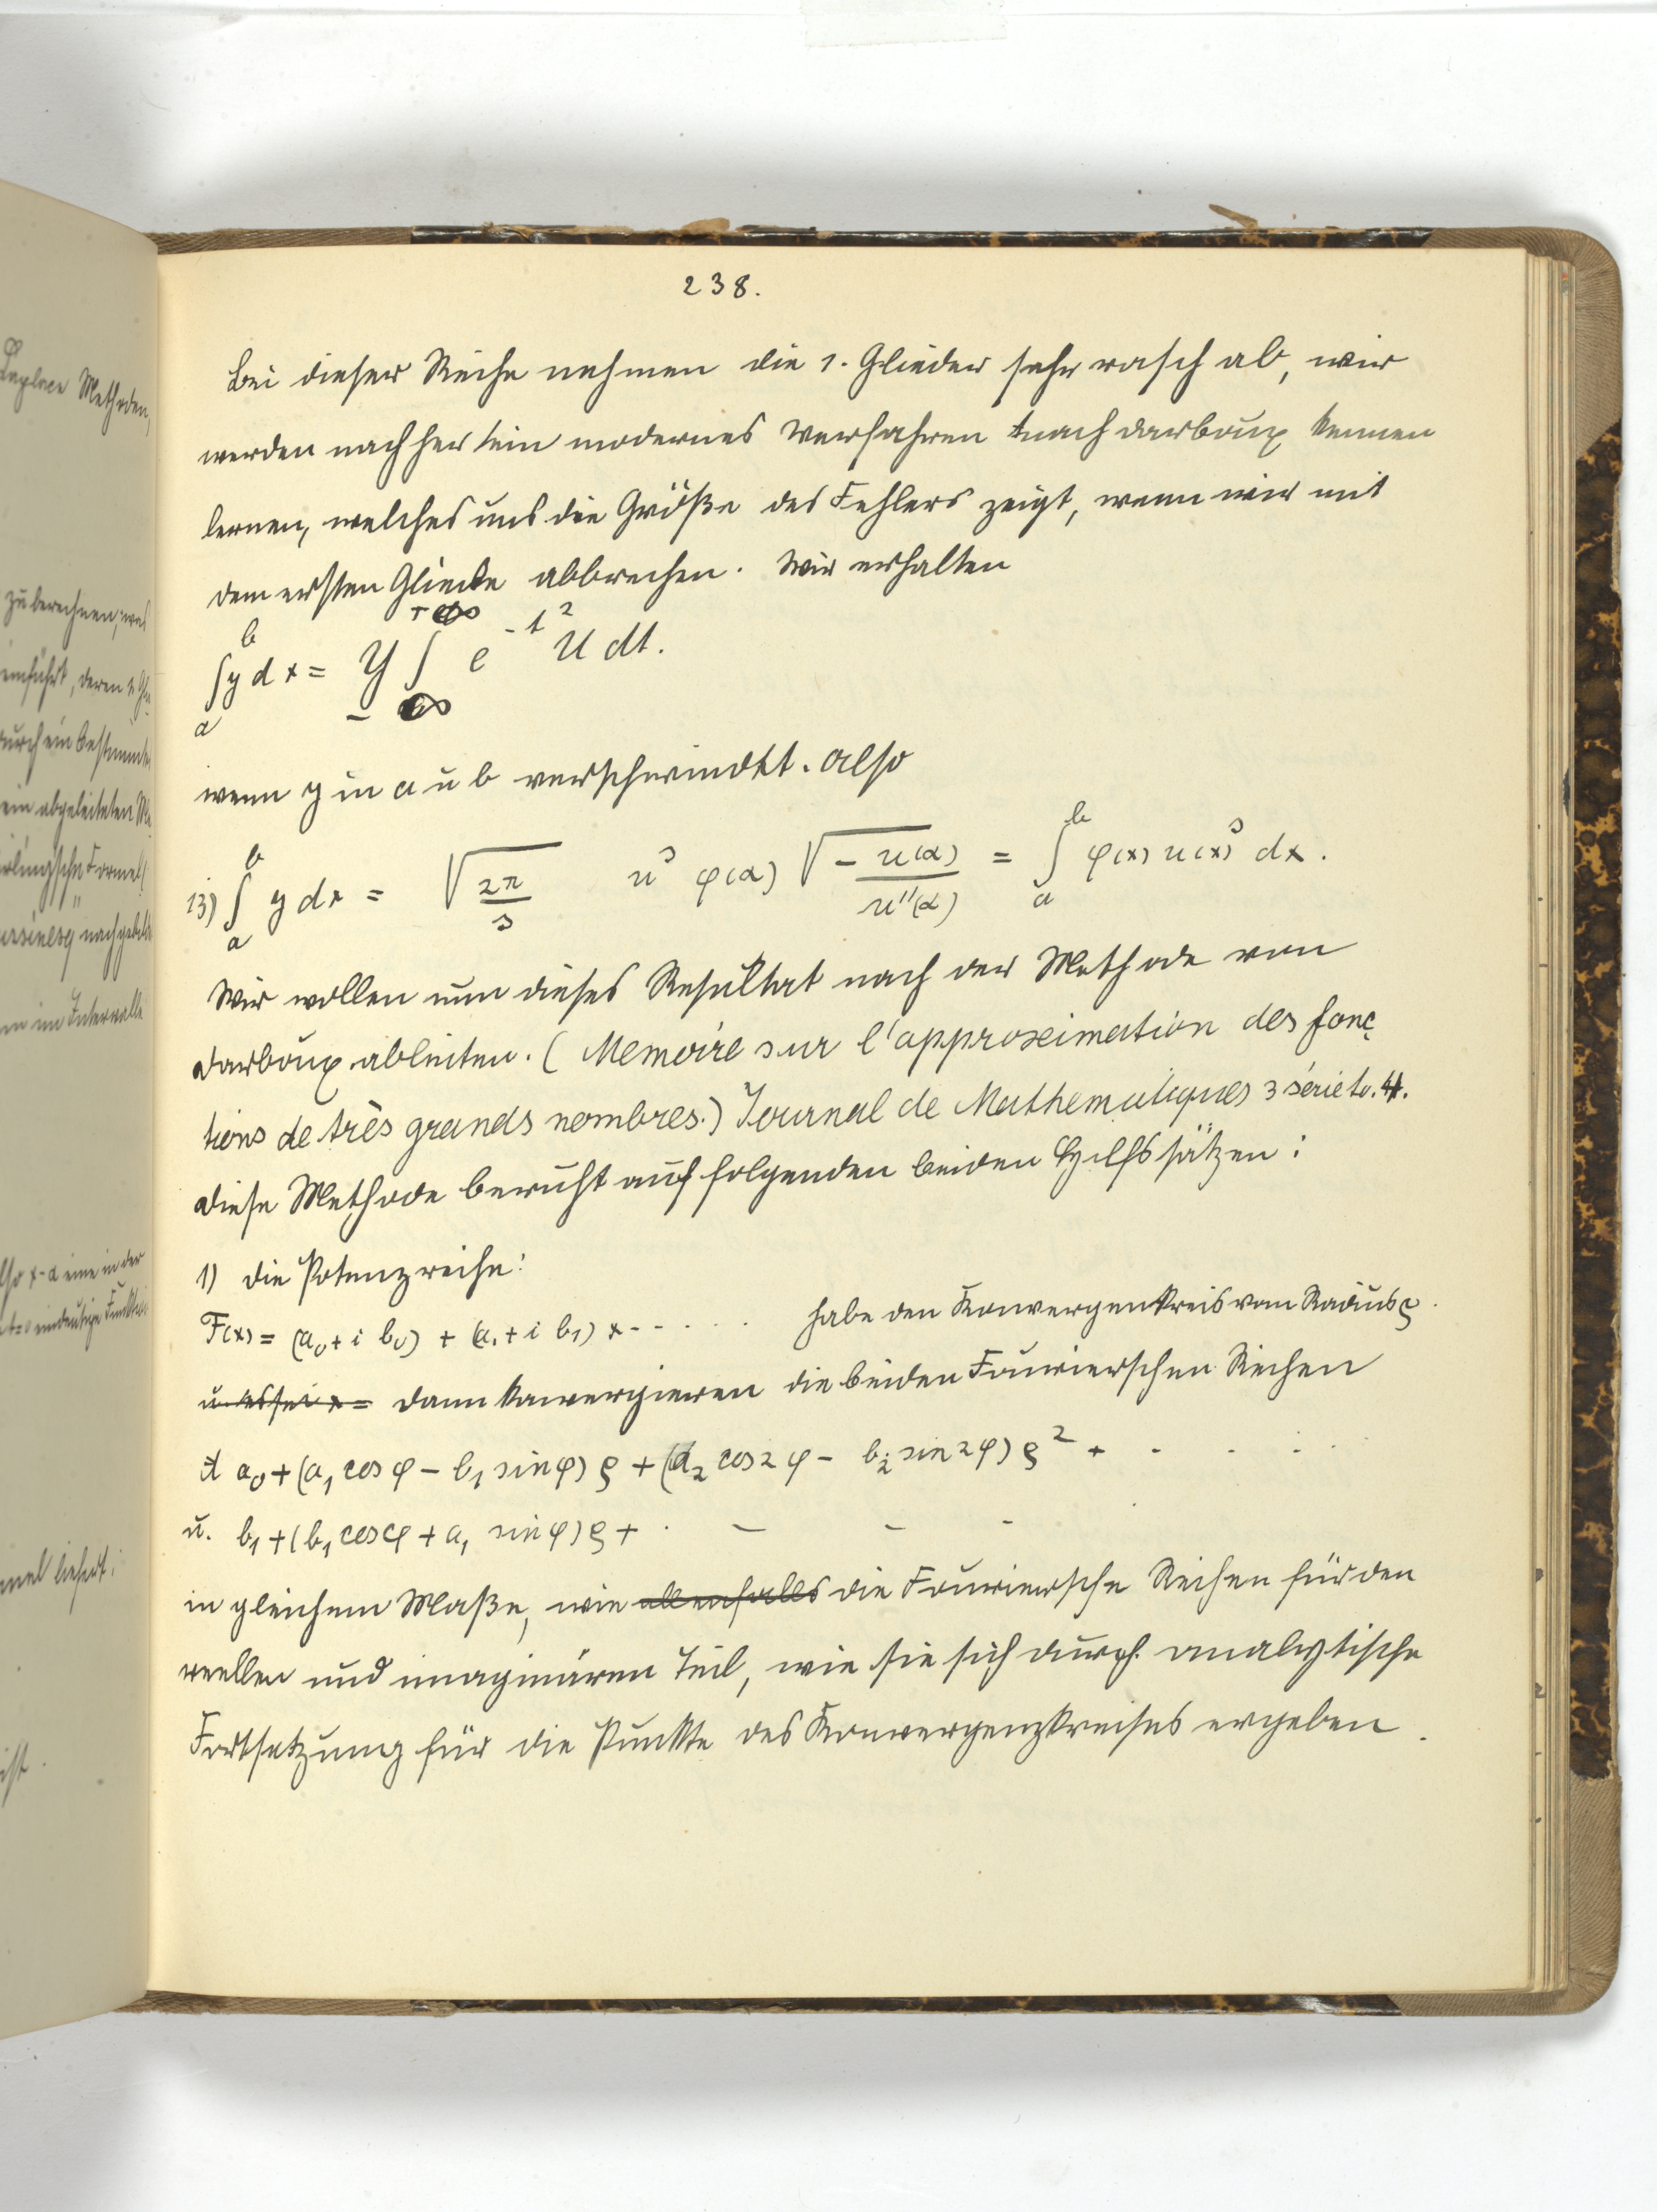 238.
Bei dieser Reihe nehmen die 1. Glieder sehr rasch ab, wir
werden nachher ein modernes Verfahren nach Darboux kennen
lernen, welches uns die Größe des Fehlers zeigt, wenn wir mit
dem ersten Gliede abbrechen. Wir erhalten
∫_a^b y dx = Y ∫_{-∞}^{+∞} e^{-t²} U dt.
wenn y in a u b verschwindet. Also
13) ∫_a^b y dx = √(2π/s) u^s φ(α) √(-u(α)/u''(α)) = ∫_a^b φ(x) u(x)^s dx.
Wir wollen nun dieses Resultat nach der Methode von
Darboux ableiten. (Memoire sur l'approximation des fonc
tions de très grands nombres.) Journal de Mathematiques 3 série to. 4.
Diese Methode beruht auf folgenden beiden Hilfssätzen:
1) Die Potenzreihe:
F(x) = (a₀ + i b₀) + (a₁ + i b₁) x - - - . . . habe den Konvergenkreis vom Radius ρ.
u. es sei x = dann konvergieren die beiden Fourierschen Reihen
a₀ + (a₁ cos φ - b₁ sin φ) ρ + (a₂ cos 2φ - b₂ sin 2φ) ρ² + - - - -
u. b₁ + (b₁ cos φ + a₁ sin φ) ρ + . - - -
in gleichem Maße, wie allenfalls die Fouriersche Reihen für den
reellen und imaginären Teil, wie sie sich durch analytische
Fortsetzung für die Punkte des Konvergenzkreises ergeben.
Laplace Methoden,
zu berechnen, was
einführt, deren 1. Gli
durch ein bestimmtes
ein abgeleiteten
Formel
nachgebild
im Intervalle
also x-α eine in der
t=0 eindeutige Funktion
liefert;
ist.